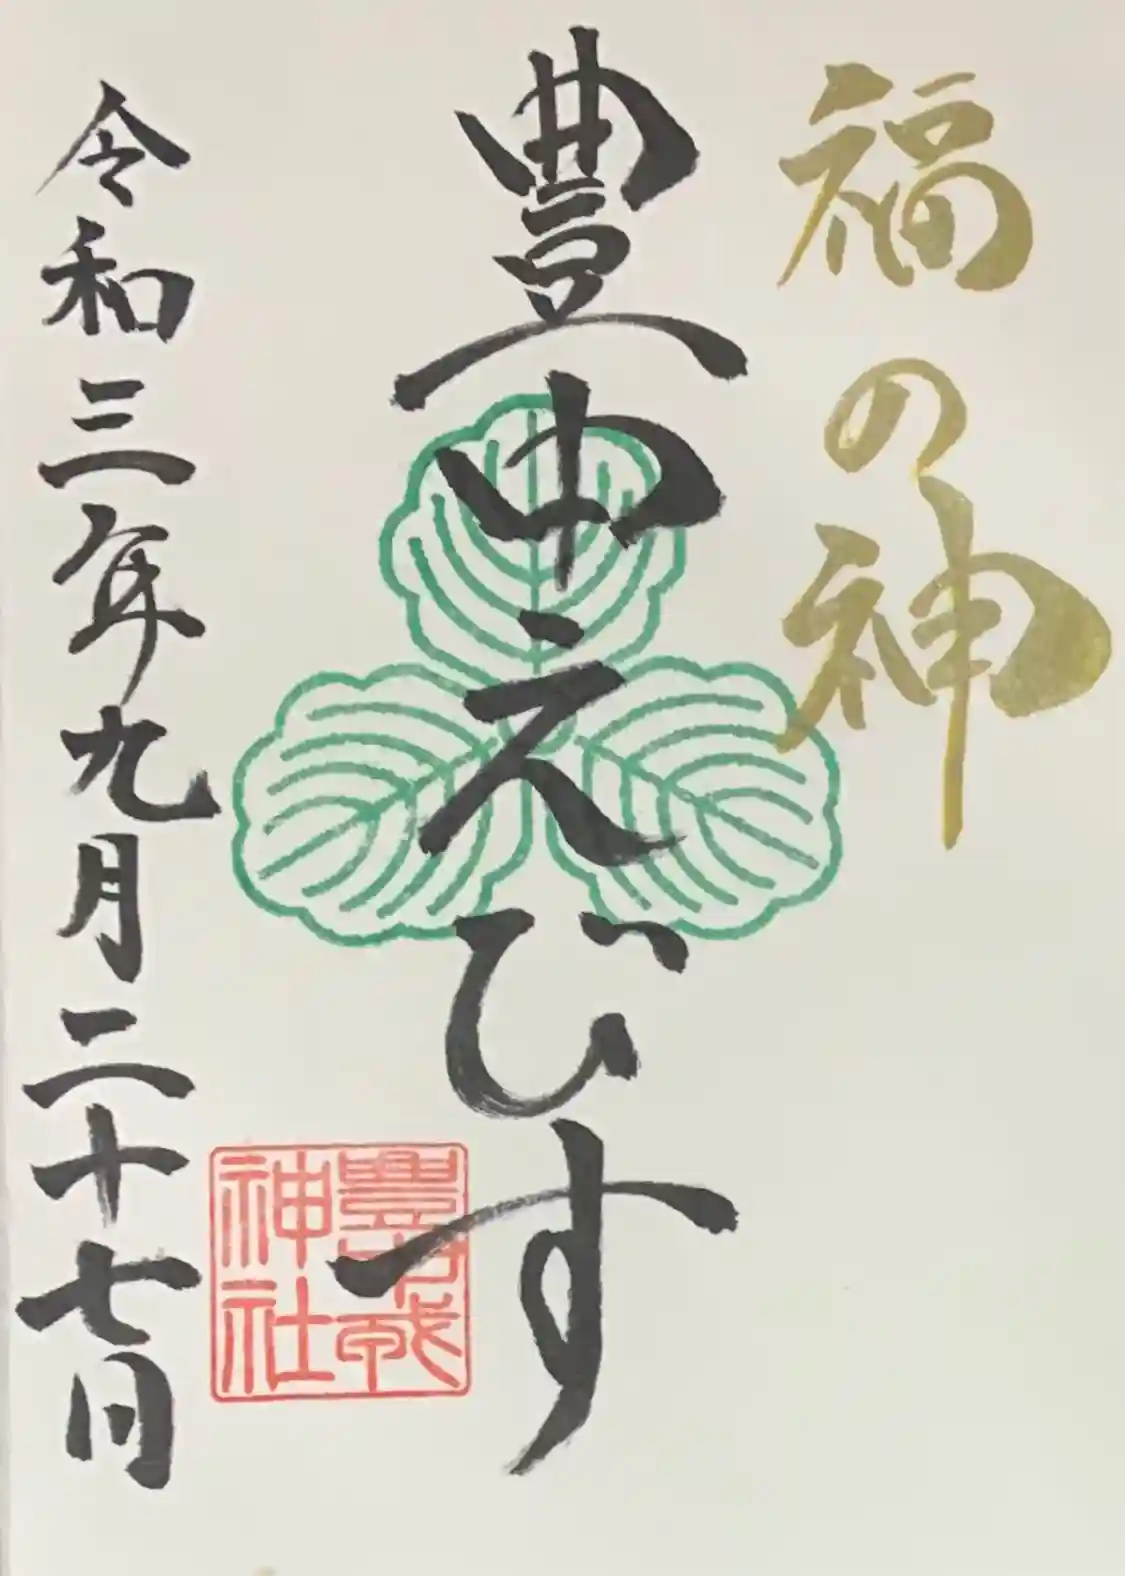 福の神
豊中えびす
豊中戎神社
令和三年九月二十七日